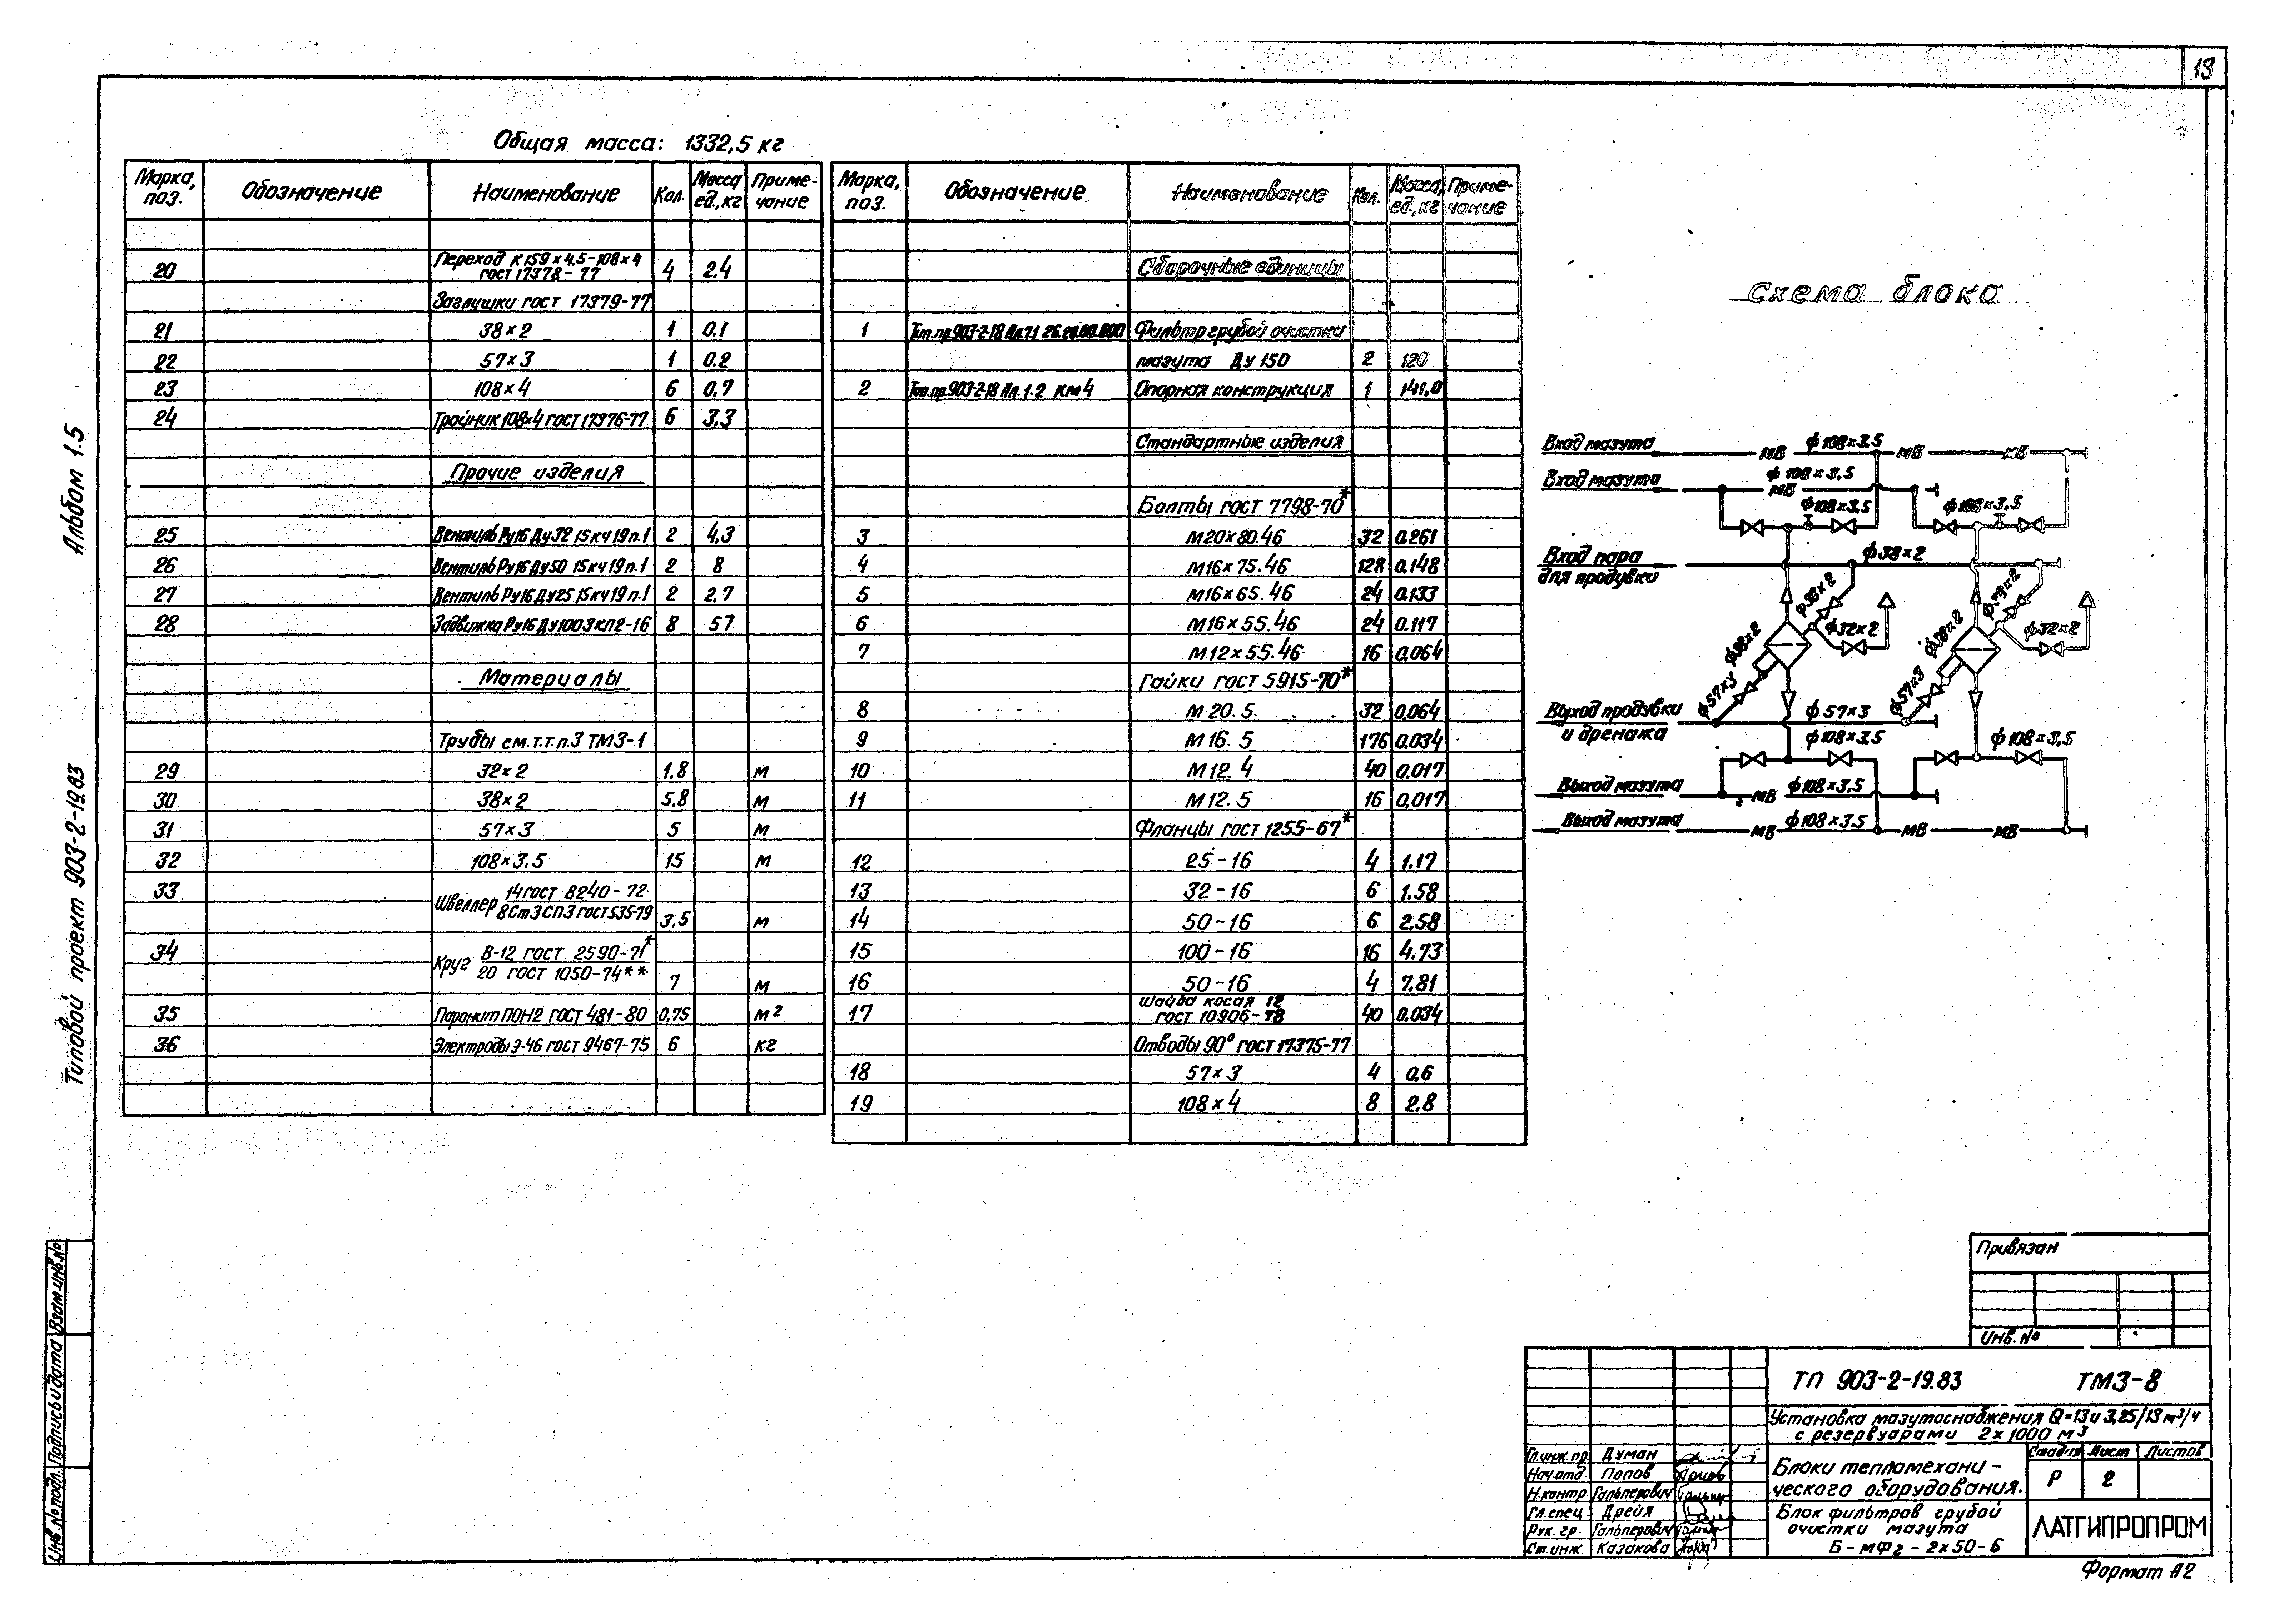 13
Общая масса: 1332,5 кг
Марка, поз. Обозначение Наименование Кол. Масса ед.,кг Приме-чание
20 Переход К159×4,5-108×4 ГОСТ 17378-77 4 2,4
Заглушки ГОСТ 17379-77
21 38×2 1 0.1
22 57×3 1 0.2
23 108×4 6 0,7
24 Тройник 108×4 ГОСТ 17376-77 6 3.3
Прочие изделия
25 Вентиль Ру16 Ду32 15кч19п.1 2 4,3
26 Вентиль Ру16 Ду50 15кч19п.1 2 8
27 Вентиль Ру16 Ду25 15кч19п.1 2 2,7
28 Задвижка Ру16 Ду100 ЗКЛ2-16 8 57
Материалы
Трубы см.т.т.п.3 ТМ3-1
29 32×2 1,8 м
30 38×2 5.8 м
31 57×3 5 м
32 108×3,5 15 м
33 Швеллер 14 ГОСТ 8240-72 / 8Ст3СП3 ГОСТ 535-79 3,5 м
34 Круг В-12 ГОСТ 2590-71* / 20 ГОСТ 1050-74** 7 м
35 Паронит ПОН2 ГОСТ 481-80 0,75 м²
36 Электроды Э-46 ГОСТ 9467-75 6 кг
Марка, поз. Обозначение Наименование Кол. Масса, ед.,кг Приме-чание
Сборочные единицы
1 Фильтр грубой очистки
мазута Ду 150 2 120
2 Тип.пр.903-2-18 Ал.1.2 КМ4 Опорная конструкция 1 141.0
Стандартные изделия
Болты ГОСТ 7798-70*
3 М20×80.46 32 0.261
4 М16×75.46 128 0.148
5 М16×65.46 24 0.133
6 М16×55.46 24 0.117
7 М12×55.46 16 0,064
Гайки ГОСТ 5915-70*
8 М20.5 32 0,064
9 М16.5 176 0.034
10 М12.4 40 0,017
11 М12.5 16 0,017
Фланцы ГОСТ 1255-67*
12 25-16 4 1.17
13 32-16 6 1.58
14 50-16 6 2.58
15 100-16 16 4.73
16 50-16 4 7.81
17 Шайба косая 12 ГОСТ 10906-78 40 0.034
Отводы 90° ГОСТ 17375-77
18 57×3 4 0,6
19 108×4 8 2.8
Схема блока
Вход мазута МВ ф108×3,5 МВ МВ
Вход мазута МВ ф108×3,5
ф108×3,5 ф108×3,5
Вход пара для продувки ф38×2
ф38×2 ф32×2 ф38×2
ф38×2 ф32×2 ф38×2
ф57×3 ф57×3
Выход продувки и дренажа ф57×3
ф108×3,5 ф108×3,5
Выход мазута МВ ф108×3,5
Выход мазута МВ ф108×3,5 МВ МВ
Альбом 1.5
Типовой проект 903-2-19.83
Взам.инв.№
Подпись и дата
Инв.№ подл.
Привязан
Инв.№
ТП 903-2-19.83 ТМ3-8
Установка мазутоснабжения Q=13 и 3,25/13 м³/ч
с резервуарами 2×1000 м³
Гл.инж.пр. Думан
Нач.отд. Попов
Н.контр. Гальперович
Гл.спец. Дрейя
Рук.гр. Гальперович
Ст.инж. Казакова
Блоки тепломехани-
ческого оборудования.
Стадия Лист Листов
Р 2
Блок фильтров грубой
очистки мазута
Б-МФг-2×50-6
ЛАТГИПРОПРОМ
Формат А2